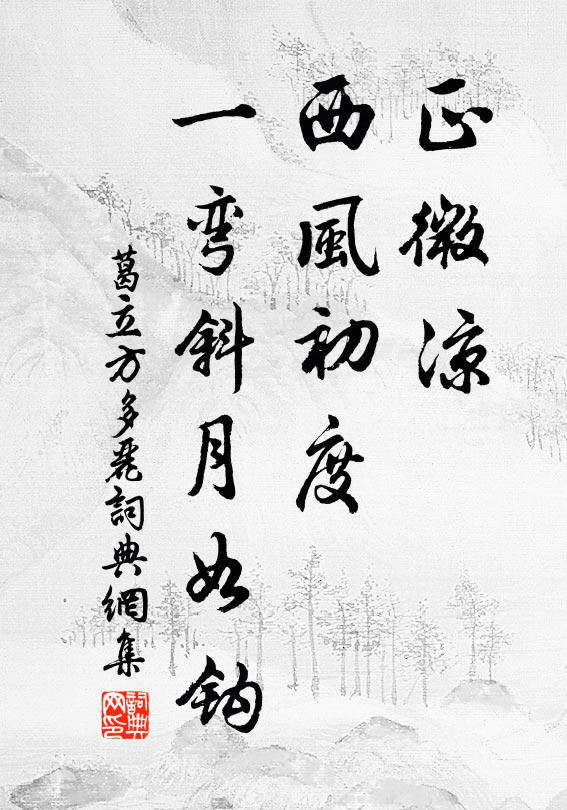 正微凉
西風初度
一弯斜月如钩
葛立方多麗詞典網集
詞典
网印